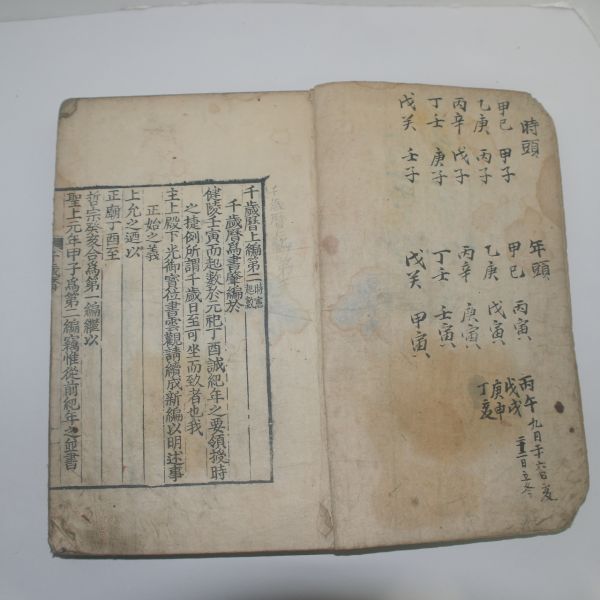 時頭
甲己 甲子
乙庚 丙子
丙辛 戊子
丁壬 庚子
戊癸 壬子
年頭
甲己 丙寅
乙庚 戊寅
丙辛 庚寅
丁壬 壬寅
戊癸 甲寅
丙午
戊戌
庚申
丁亥
千歲曆上編第二 時憲起數
千歲曆爲書肇編於
健陵壬寅而起數於元祀丁酉誠紀年之要領授時
之捷例所謂千歲日至可坐而致者也我
主上殿下光御寶位書雲觀請續成新編以明述事
正始之義
上允之迺以
正廟丁酉至
哲宗癸亥合爲第一編繼以
聖上元年甲子爲第二編竊惟從前紀年之並書